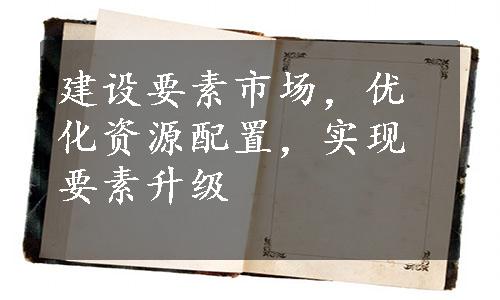 建设要素市场，优
化资源配置，实现
要素升级